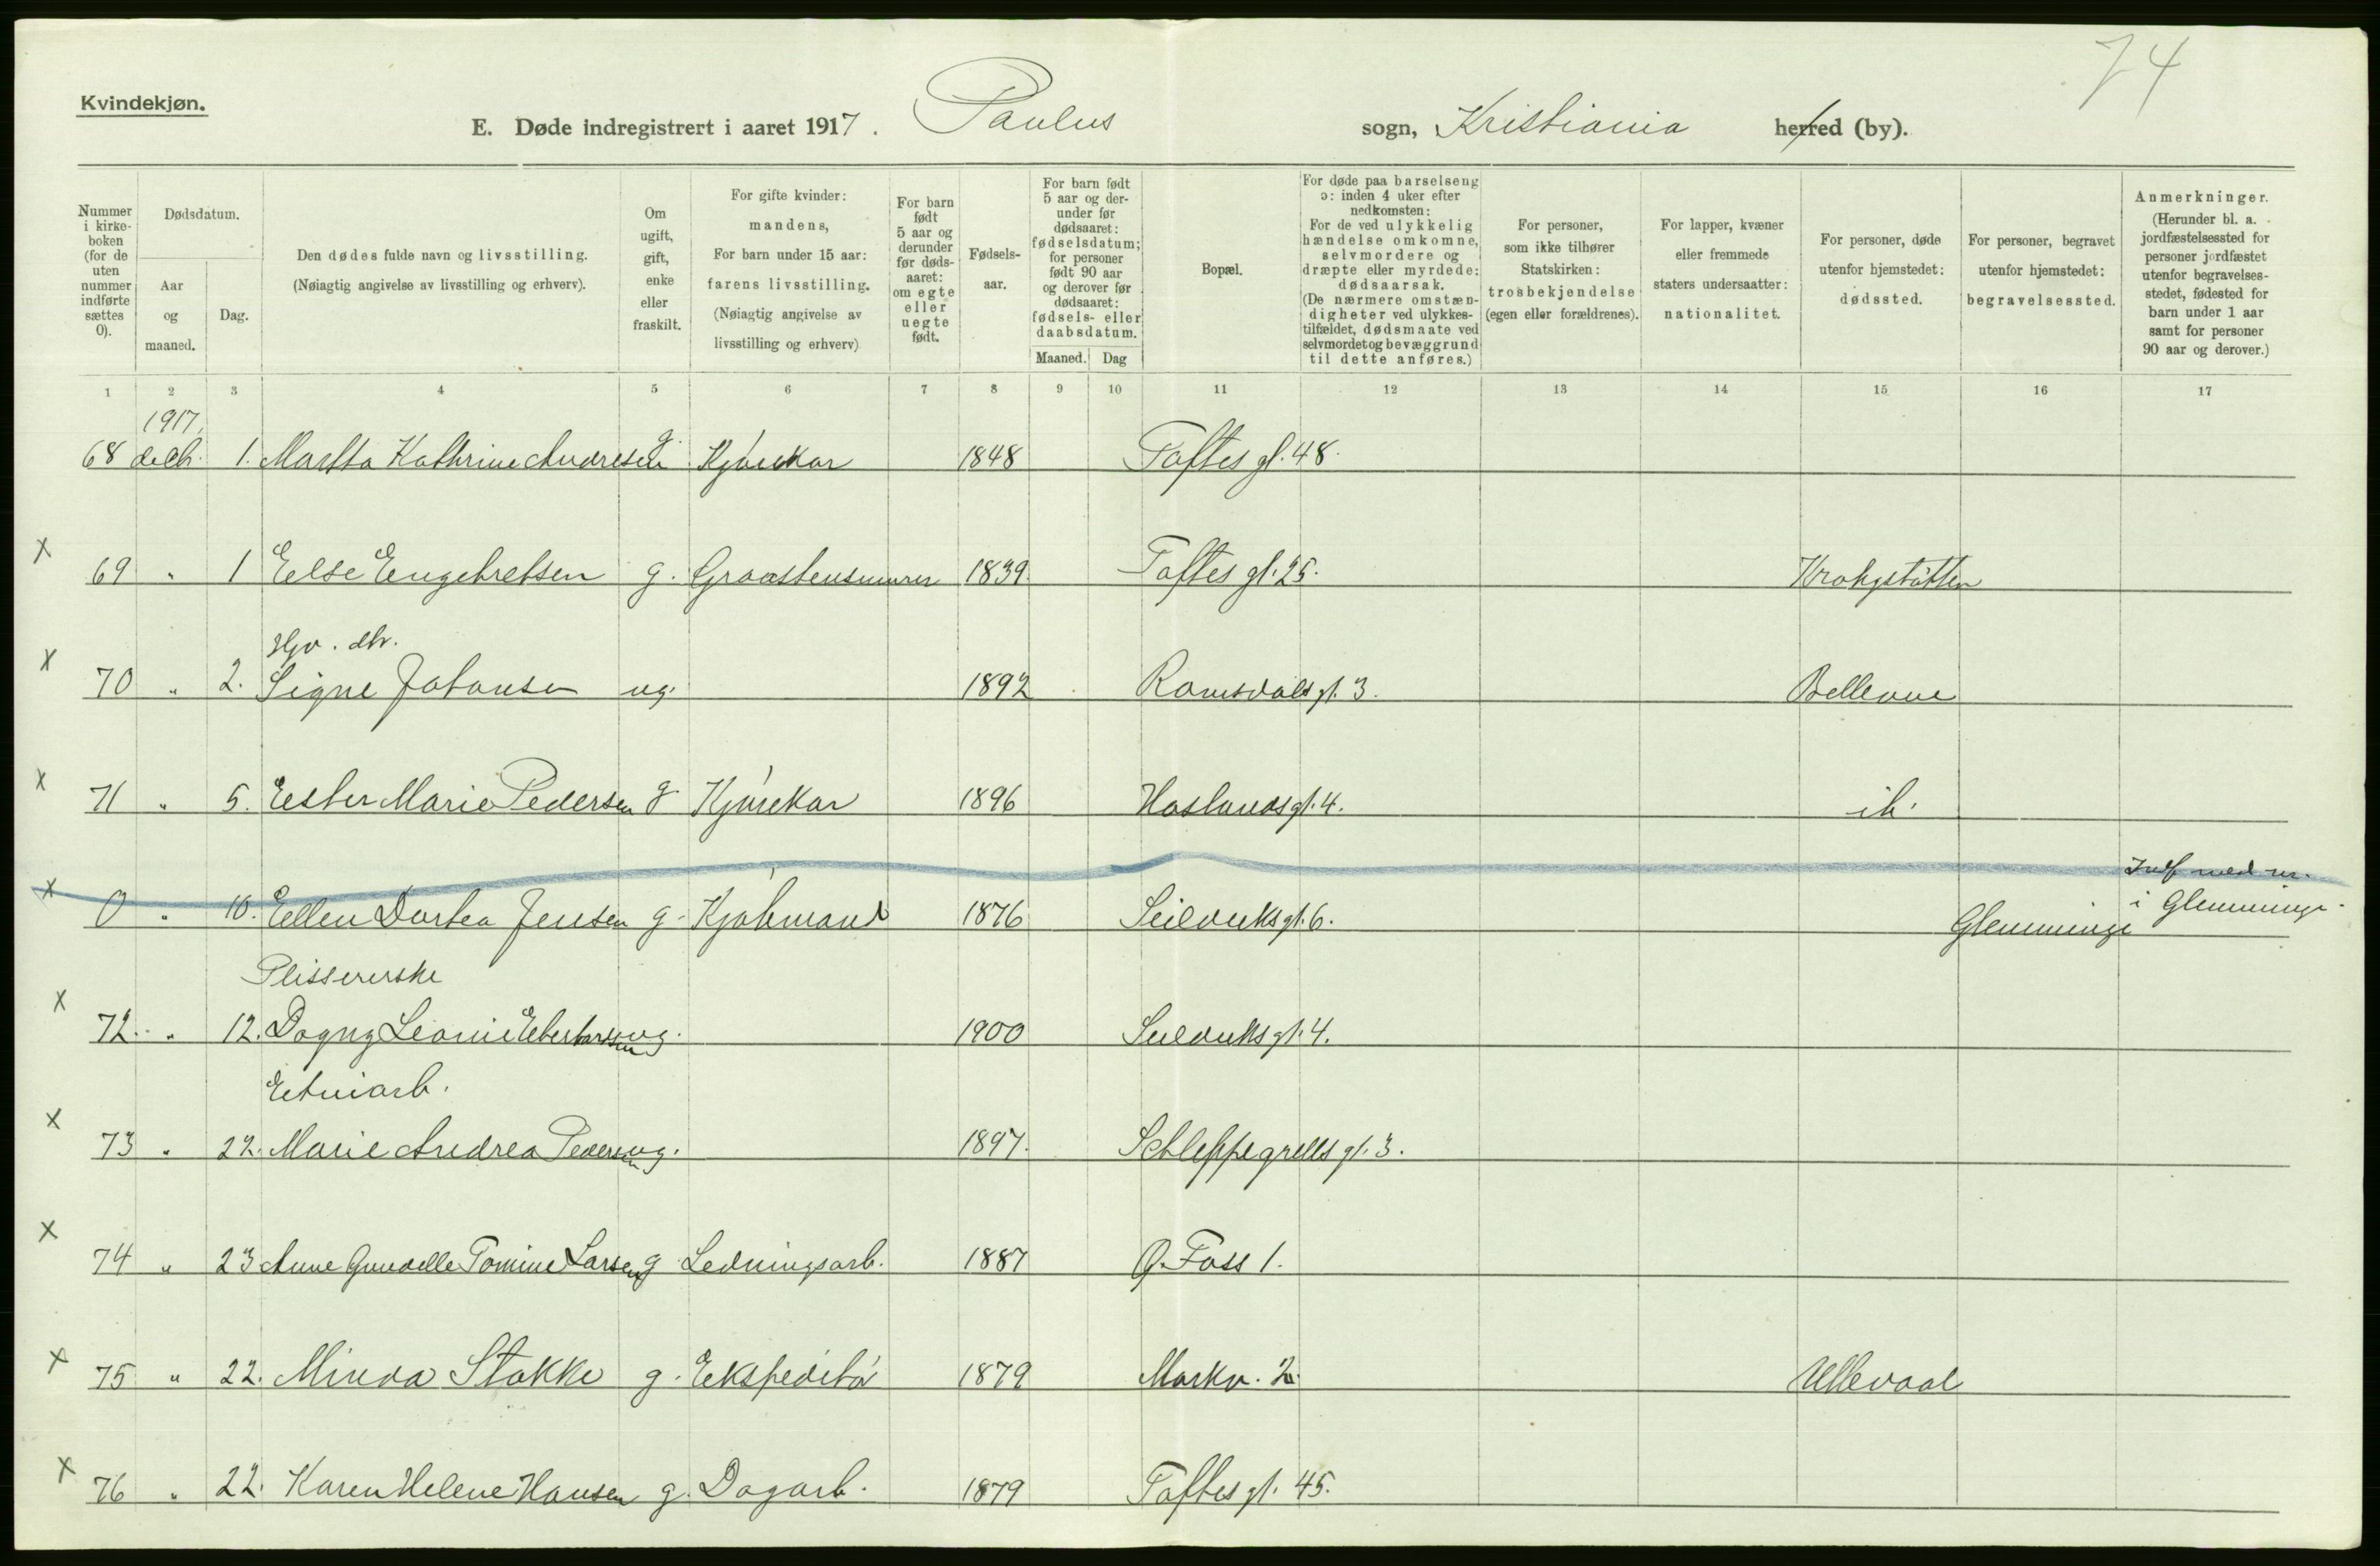 74
Kvindekjøn.
E. Døde indregistrert i aaret 1917. Paulus sogn, Kristiania herred (by).
Nummer i kirke-boken (for de uten nummer indførte sættes 0).
Dødsdatum.
Aar og maaned.
Dag.
Den dødes fulde navn og livsstilling.
(Nøiagtig angivelse av livsstilling og erhverv).
Om ugift, gift, enke eller fraskilt.
For gifte kvinder: mandens,
For barn under 15 aar: farens livsstilling.
(Nøiagtig angivelse av livsstilling og erhverv)
For barn født 5 aar og derunder før døds-aaret: om egte eller uegte født.
Fødsels-aar.
For barn født 5 aar og der-under før dødsaaret: fødselsdatum; for personer født 90 aar og derover før dødsaaret: fødsels- eller daabsdatum.
Maaned.
Dag
Bopæl.
For døde paa barselseng ɔ: inden 4 uker efter nedkomsten:
For de ved ulykkelig hændelse omkomne, selvmordere og dræpte eller myrdede: dødsaarsak.
(De nærmere omstæn-digheter ved ulykkes-tilfældet, dødsmaate ved selvmordet og bevæggrund til dette anføres.)
For personer, som ikke tilhører Statskirken: trosbekjendelse (egen eller forældrenes).
For lapper, kvæner eller fremmede staters undersaatter: nationalitet.
For personer, døde utenfor hjemstedet: dødssted.
For personer, begravet utenfor hjemstedet: begravelsessted.
Anmerkninger.
(Herunder bl. a. jordfæstelsessted for personer jordfæstet utenfor begravelses-stedet, fødested for barn under 1 aar samt for personer 90 aar og derover.)
1 2 3 4 5 6 7 8 9 10 11 12 13 14 15 16 17
1917.
68 decb. 1. Martta Kathrine Andresen g. Kjørekar 1848 Toftes gt. 48.
x 69 " 1 Else Engebretsen g. Graastensmurer 1839. Toftes gt. 25. Krohgstøtten
Hjv. dtr.
x 70 " 2. Signe Johansen ug. 1892 Romsdals gt. 3. Bellevue
x 71 " 5. Ester Marie Pedersen g. Kjørekar 1896 Haslunds gt. 4. ib.
Indf med nr.
x 0 " 10. Ellen Dortea Jensen g. Kjøbmand 1876 Seilduks gt. 6. Glemminge i Glemminge.
Plissererske
x 72. " 12. Dagny Leonie Ebertardsen ug. 1900 Seilduks gt. 4.
Etuiarb.
x 73 " 22. Marie Andrea Pedersen ug. 1897. Schleppegrells gt. 3.
x 74 " 23 Anne Gunelle Tomine Larsen g. Ledningsarb. 1887 Ø. Foss 1.
x 75 " 22. Minda Stakke g. Ekspeditør 1879 Markv. 2. Ullevaal
x 76 " 22. Karen Helene Hansen g. Dagarb. 1879 Toftes gt. 45.